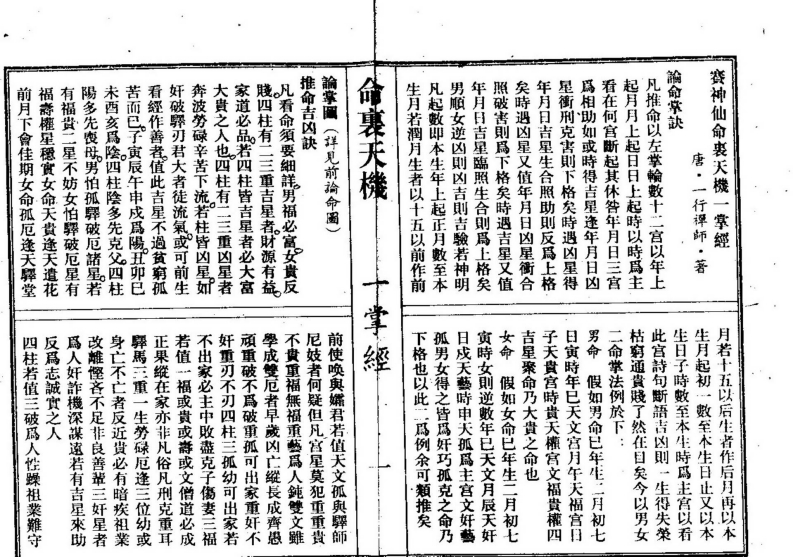 賽神仙命裏天機一掌經
唐·一行禪師·著
論命掌訣
凡推命以左掌輪數十二宮以年上
起月月上起日日上起時以時爲主
看在何宮斷起其休咎年月日三宮
爲相助如或時得吉星逢年月日凶
星衝刑克害則下格矣時遇凶星得
年月日吉星生合照助則反爲上格
矣時遇凶星又值年月日凶星衝合
照破害則爲下格矣時遇吉星又值
年月日吉星臨照生合則爲上格矣
男順女逆凶則凶吉則吉驗若神明
凡起數即本生年上起正月數至本
生月若潤月生者以十五以前作前
月若十五以后生者作后月再以本
生月起初一數至本生日止又以本
生日子時數至本生時爲主宮以看
此宮詩句斷語吉凶則一生得失榮
枯窮通貴賤了然在目矣今以男女
二命掌法例於下：
男命　假如男命巳年生二月初七
日寅時年巳天文宮月午天福宮日
子天貴宮時貴天權宮文福貴權四
吉星聚命乃大貴之命也
女命　假如女命巳年生二月初七
寅時女則逆數年巳天文月辰天奸
日戌天藝時申天孤爲主宮文奸藝
孤男女得之皆爲奸巧孤克之命乃
下格也以此二爲例余可類推矣
命裏天機
一掌經
一
論掌圖（詳見前論命圖）
推命吉凶訣
凡看命須要細詳男福必富女貴反
賤四柱有二三重吉星者財源有益
家道必品若四柱皆吉星者必大富
大貴之人也四柱有二三重凶星者
奔波勞碌辛苦下流若柱皆凶星如
奸破驛刃君大者徒流氣或可前生
看經作善者值此吉星不過貧窮孤
苦而巳子寅辰午申戌爲陽丑卯巳
未酉亥爲陰四柱陰多先克父四柱
陽多先喪母男怕孤驛破厄諸星若
有福貴二星不妨女怕驛破厄星有
福壽權星穩實女命天貴逢天遣花
前月下會佳期女命孤厄逢天驛堂
前使喚與孀君若值天文孤與驛師
尼妓者何疑但凡宮星莫犯重重貴
不貴重福無福重藝爲人鈍雙文雖
學成雙厄者早歲凶亡縱長成齊愚
頑重破不爲破重孤可出家重奸不
奸重刃不刃四柱三孤幼可出家若
不出家必主中敗盡克子傷妻三福
若值一福或貴或壽或文僧道必成
正果縱在家亦非凡俗凡刑克重耳
驛馬三重一生勞碌厄逢三位幼或
身亡不亡者反近貴必有暗疾祖業
改離慳吝不足非良善輩三奸星者
爲人奸詐機深謀遠若有吉星來助
反爲志誠實之人
四柱若值三破爲人性躁祖業難守